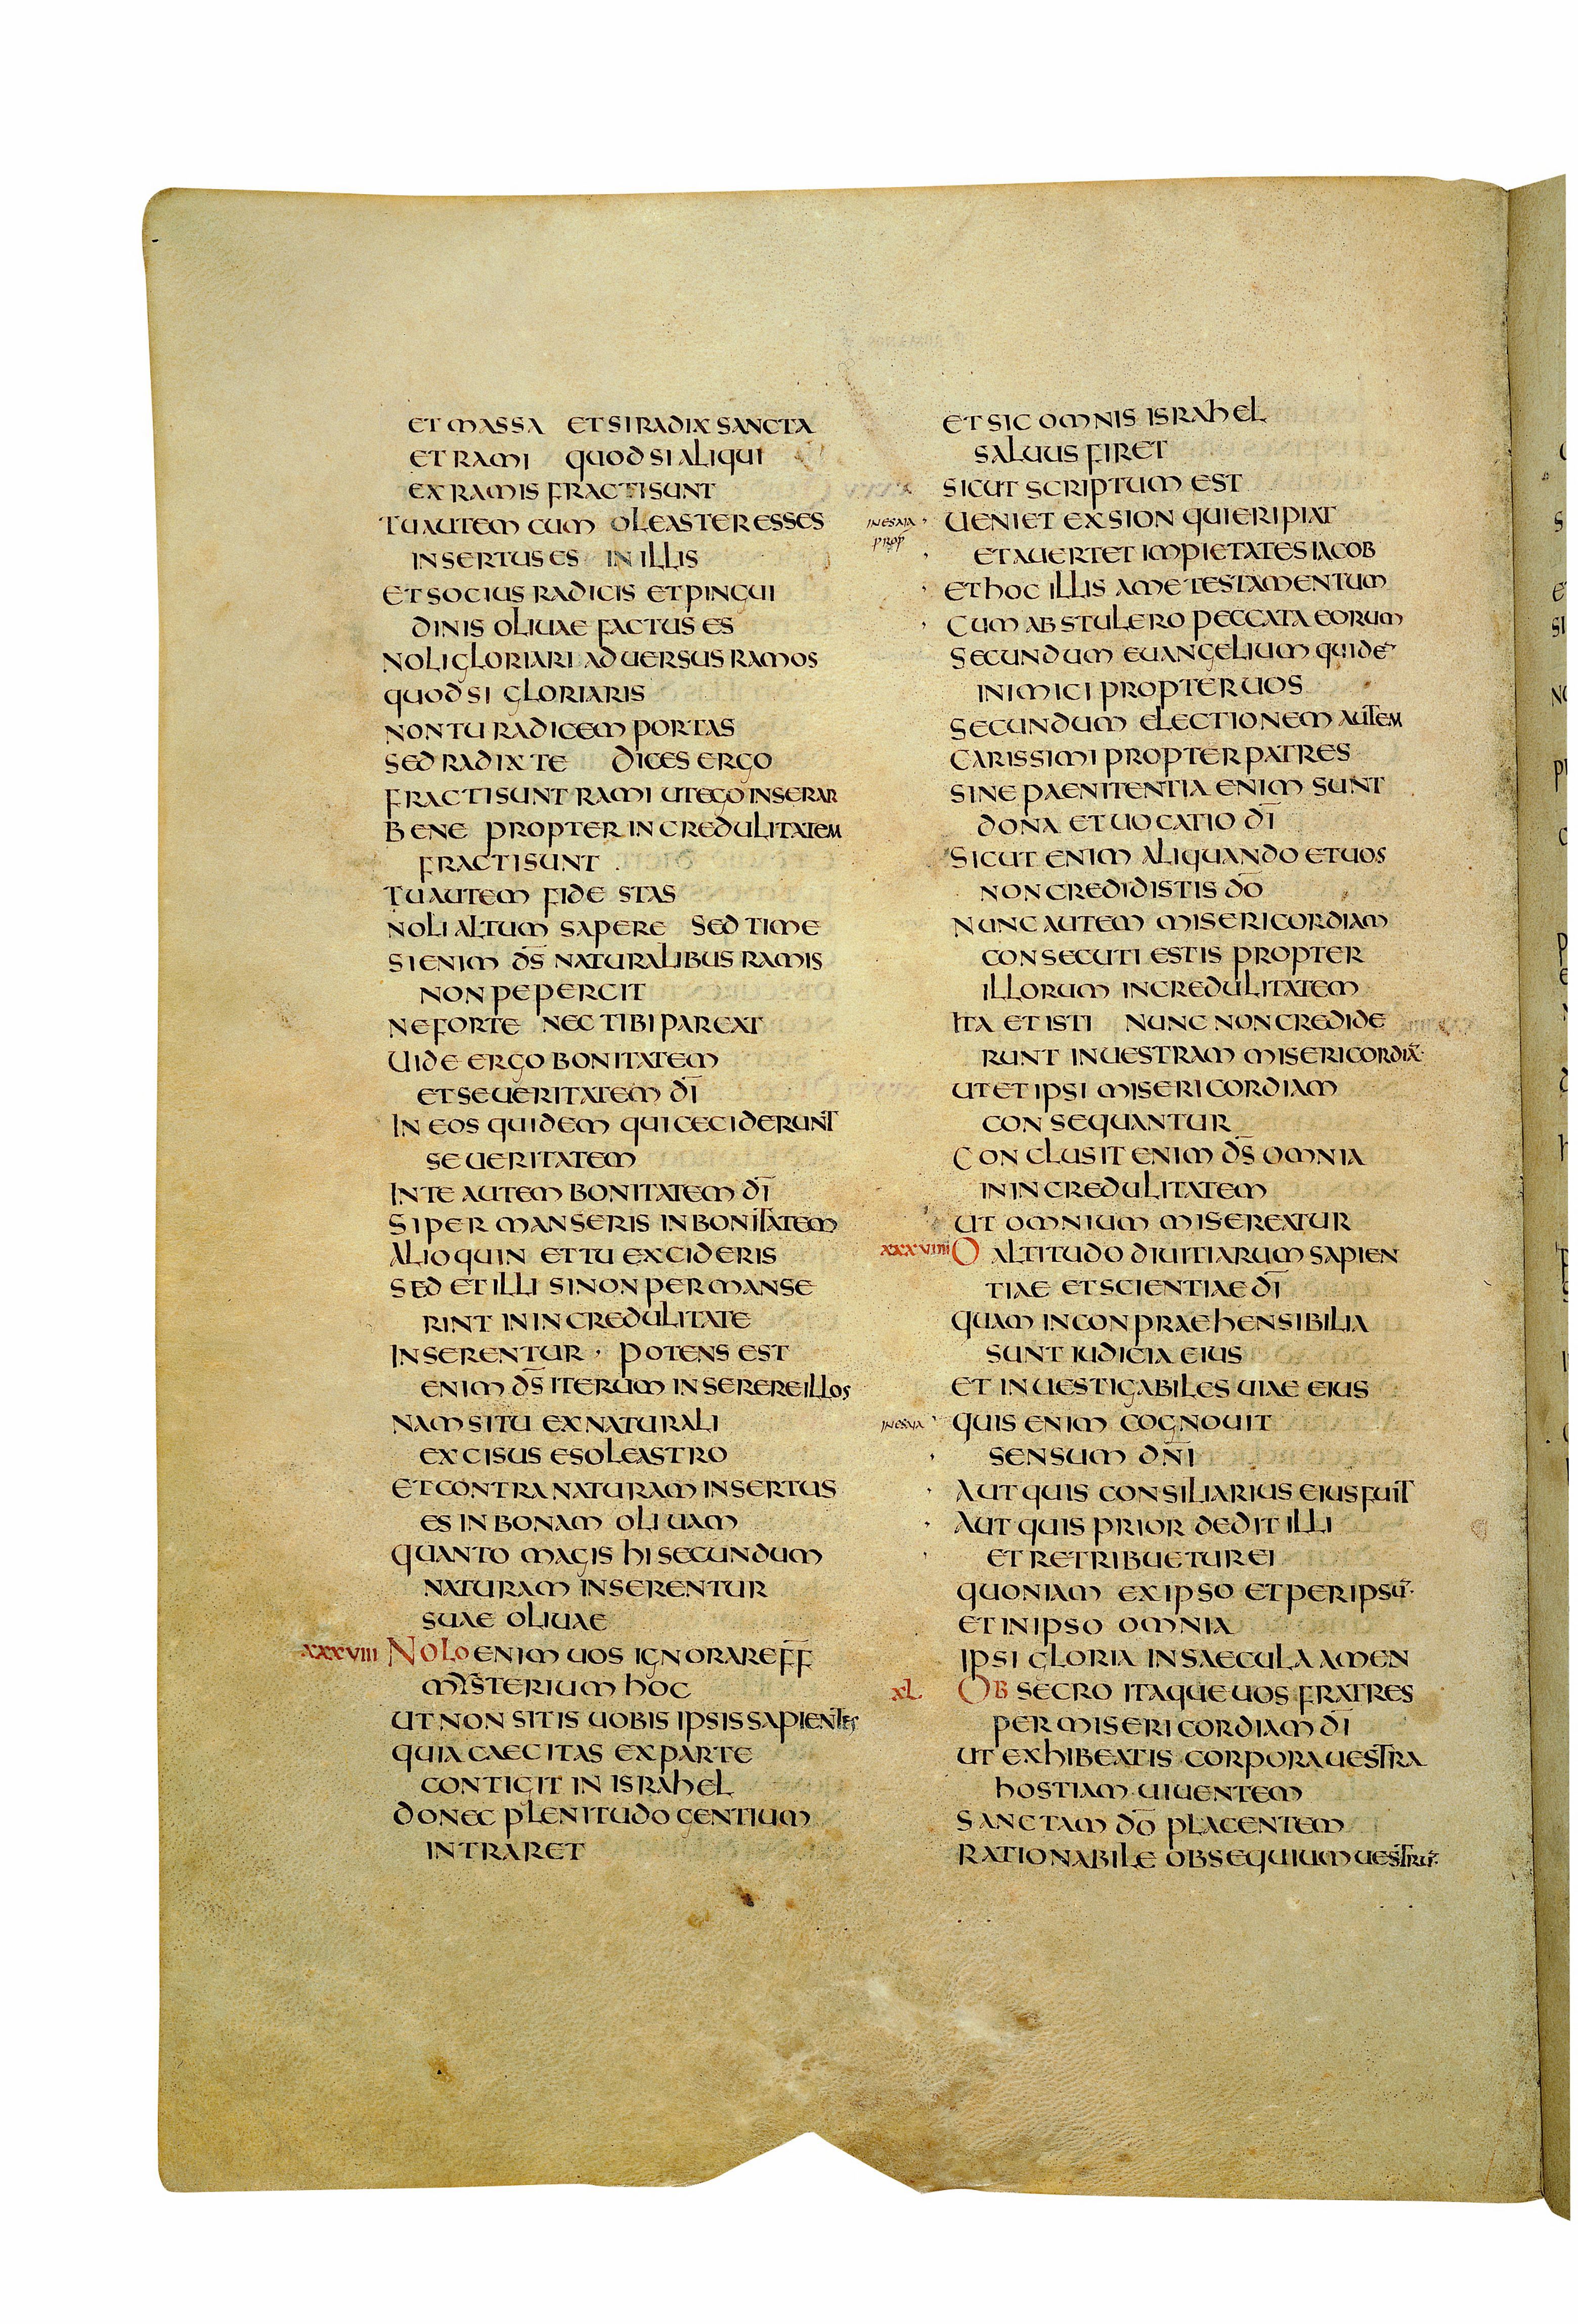 ET MASSA ET SI RADIX SANCTA
ET RAMI QUOD SI ALIQUI
EX RAMIS FRACTI SUNT
TU AUTEM CUM OLEASTER ESSES
INSERTUS ES IN ILLIS
ET SOCIUS RADICIS ET PINGUI
DINIS OLIUAE FACTUS ES
NOLI GLORIARI ADUERSUS RAMOS
QUOD SI GLORIARIS
NON TU RADICEM PORTAS
SED RADIX TE DICES ERGO
FRACTI SUNT RAMI UT EGO INSERAR
BENE PROPTER INCREDULITATEM
FRACTI SUNT
TU AUTEM FIDE STAS
NOLI ALTUM SAPERE SED TIME
SI ENIM D̄S NATURALIBUS RAMIS
NON PEPERCIT
NE FORTE NEC TIBI PARCAT
UIDE ERGO BONITATEM
ET SEUERITATEM D̄I
IN EOS QUIDEM QUI CECIDERUNT
SEUERITATEM
IN TE AUTEM BONITATEM D̄I
SI PERMANSERIS IN BONITATEM
ALIOQUIN ET TU EXCIDERIS
SED ET ILLI SI NON PERMANSE
RINT IN INCREDULITATE
INSERENTUR · POTENS EST
ENIM D̄S ITERUM INSERERE ILLOS
NAM SI TU EX NATURALI
EXCISUS ES OLEASTRO
ET CONTRA NATURAM INSERTUS
ES IN BONAM OLIUAM
QUANTO MAGIS HI SECUNDUM
NATURAM INSERENTUR
SUAE OLIUAE
XXXVIII NOLO ENIM UOS IGNORARE F̄F̄
MISTERIUM HOC
UT NON SITIS UOBIS IPSIS SAPIENTES
QUIA CAECITAS EX PARTE
CONTIGIT IN ISRAHEL
DONEC PLENITUDO GENTIUM
INTRARET
ET SIC OMNIS ISRAHEL
SALUUS FIRET
SICUT SCRIPTUM EST
IN ESAIA UENIET EX SION QUI ERIPIAT
PROP̄ ET AUERTET IMPIETATES IACOB
ET HOC ILLIS A ME TESTAMENTUM
CUM ABSTULERO PECCATA EORUM
SECUNDUM EUANGELIUM QUIDĒ
INIMICI PROPTER UOS
SECUNDUM ELECTIONEM AUTEM
CARISSIMI PROPTER PATRES
SINE PAENITENTIA ENIM SUNT
DONA ET UOCATIO D̄I
SICUT ENIM ALIQUANDO ET UOS
NON CREDIDISTIS D̄O
NUNC AUTEM MISERICORDIAM
CONSECUTI ESTIS PROPTER
ILLORUM INCREDULITATEM
ITA ET ISTI NUNC NON CREDIDE
RUNT IN UESTRAM MISERICORDIĀ
UT ET IPSI MISERICORDIAM
CONSEQUANTUR
CONCLUSIT ENIM D̄S OMNIA
IN INCREDULITATEM
UT OMNIUM MISEREATUR
XXXVIIII O ALTITUDO DIUITIARUM SAPIEN
TIAE ET SCIENTIAE D̄I
QUAM INCONPRAEHENSIBILIA
SUNT IUDICIA EIUS
ET INUESTIGABILES UIAE EIUS
IN ESAIA QUIS ENIM COGNOUIT
SENSUM DN̄I
AUT QUIS CONSILIARIUS EIUS FUIT
AUT QUIS PRIOR DEDIT ILLI
ET RETRIBUETUR EI
QUONIAM EX IPSO ET PER IPSŪ
ET IN IPSO OMNIA
IPSI GLORIA IN SAECULA AMEN
XL OBSECRO ITAQUE UOS FRATRES
PER MISERICORDIAM D̄I
UT EXHIBEATIS CORPORA UESTRA
HOSTIAM UIUENTEM
SANCTAM D̄O PLACENTEM
RATIONABILE OBSEQUIUM UESTRŪ